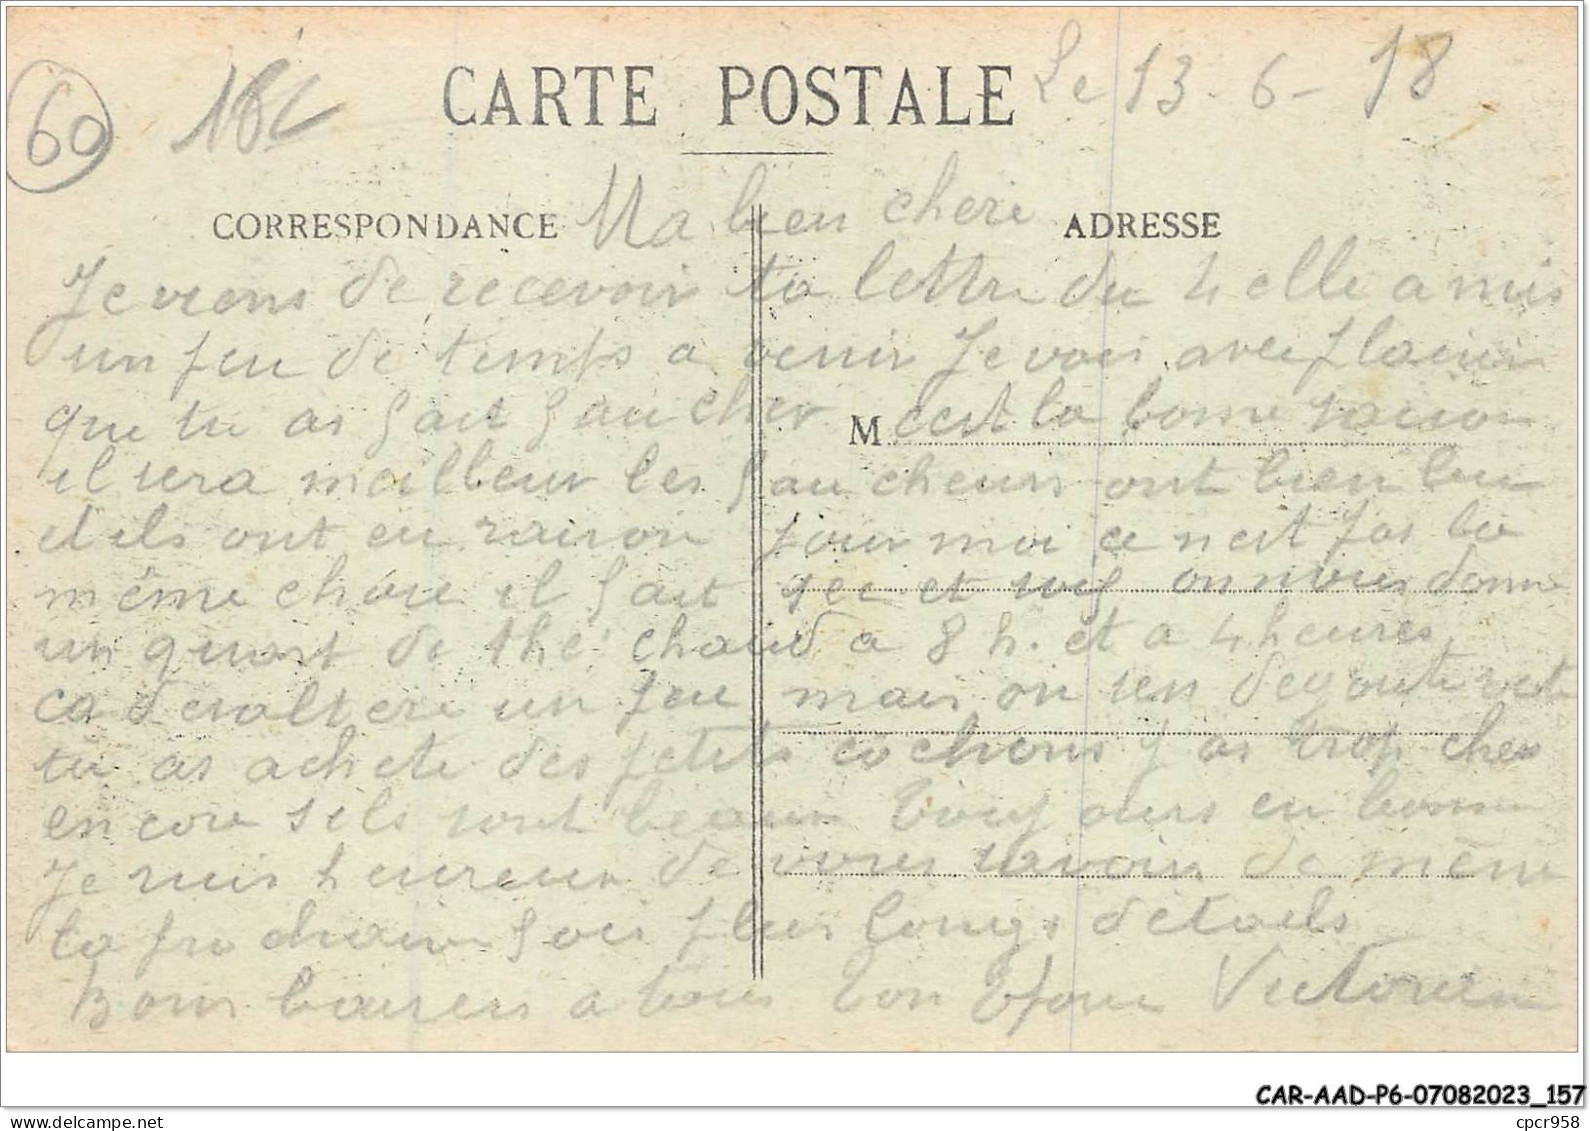 60 18c
CARTE POSTALE Le 13-6-18
CORRESPONDANCE Ma bien chere ADRESSE
Je viens de recevoir ta lettre du 4 elle a mis
un peu de temps a venir Je vois avec plaisir
que tu as fait faucher M cest la bonne raison
il sera meilleur les faucheurs ont bien bu
et ils ont eu raison pour moi ce nest pas la
même chose il fait sec et soif on nous donne
un quart de thé chaud a 8 h. et a 4 heures
ca desaltere un peu mais on sen degoute vite
tu as achete des petits cochons pas trop cher
encore sils sont beaux Toujours en bonne
Je suis heureux de vous savoir de même
la prochaine fois plus longs détails
Bons baisers a tous Ton Epoux
CAR-AAD-P6-07082023_157
cpcr958